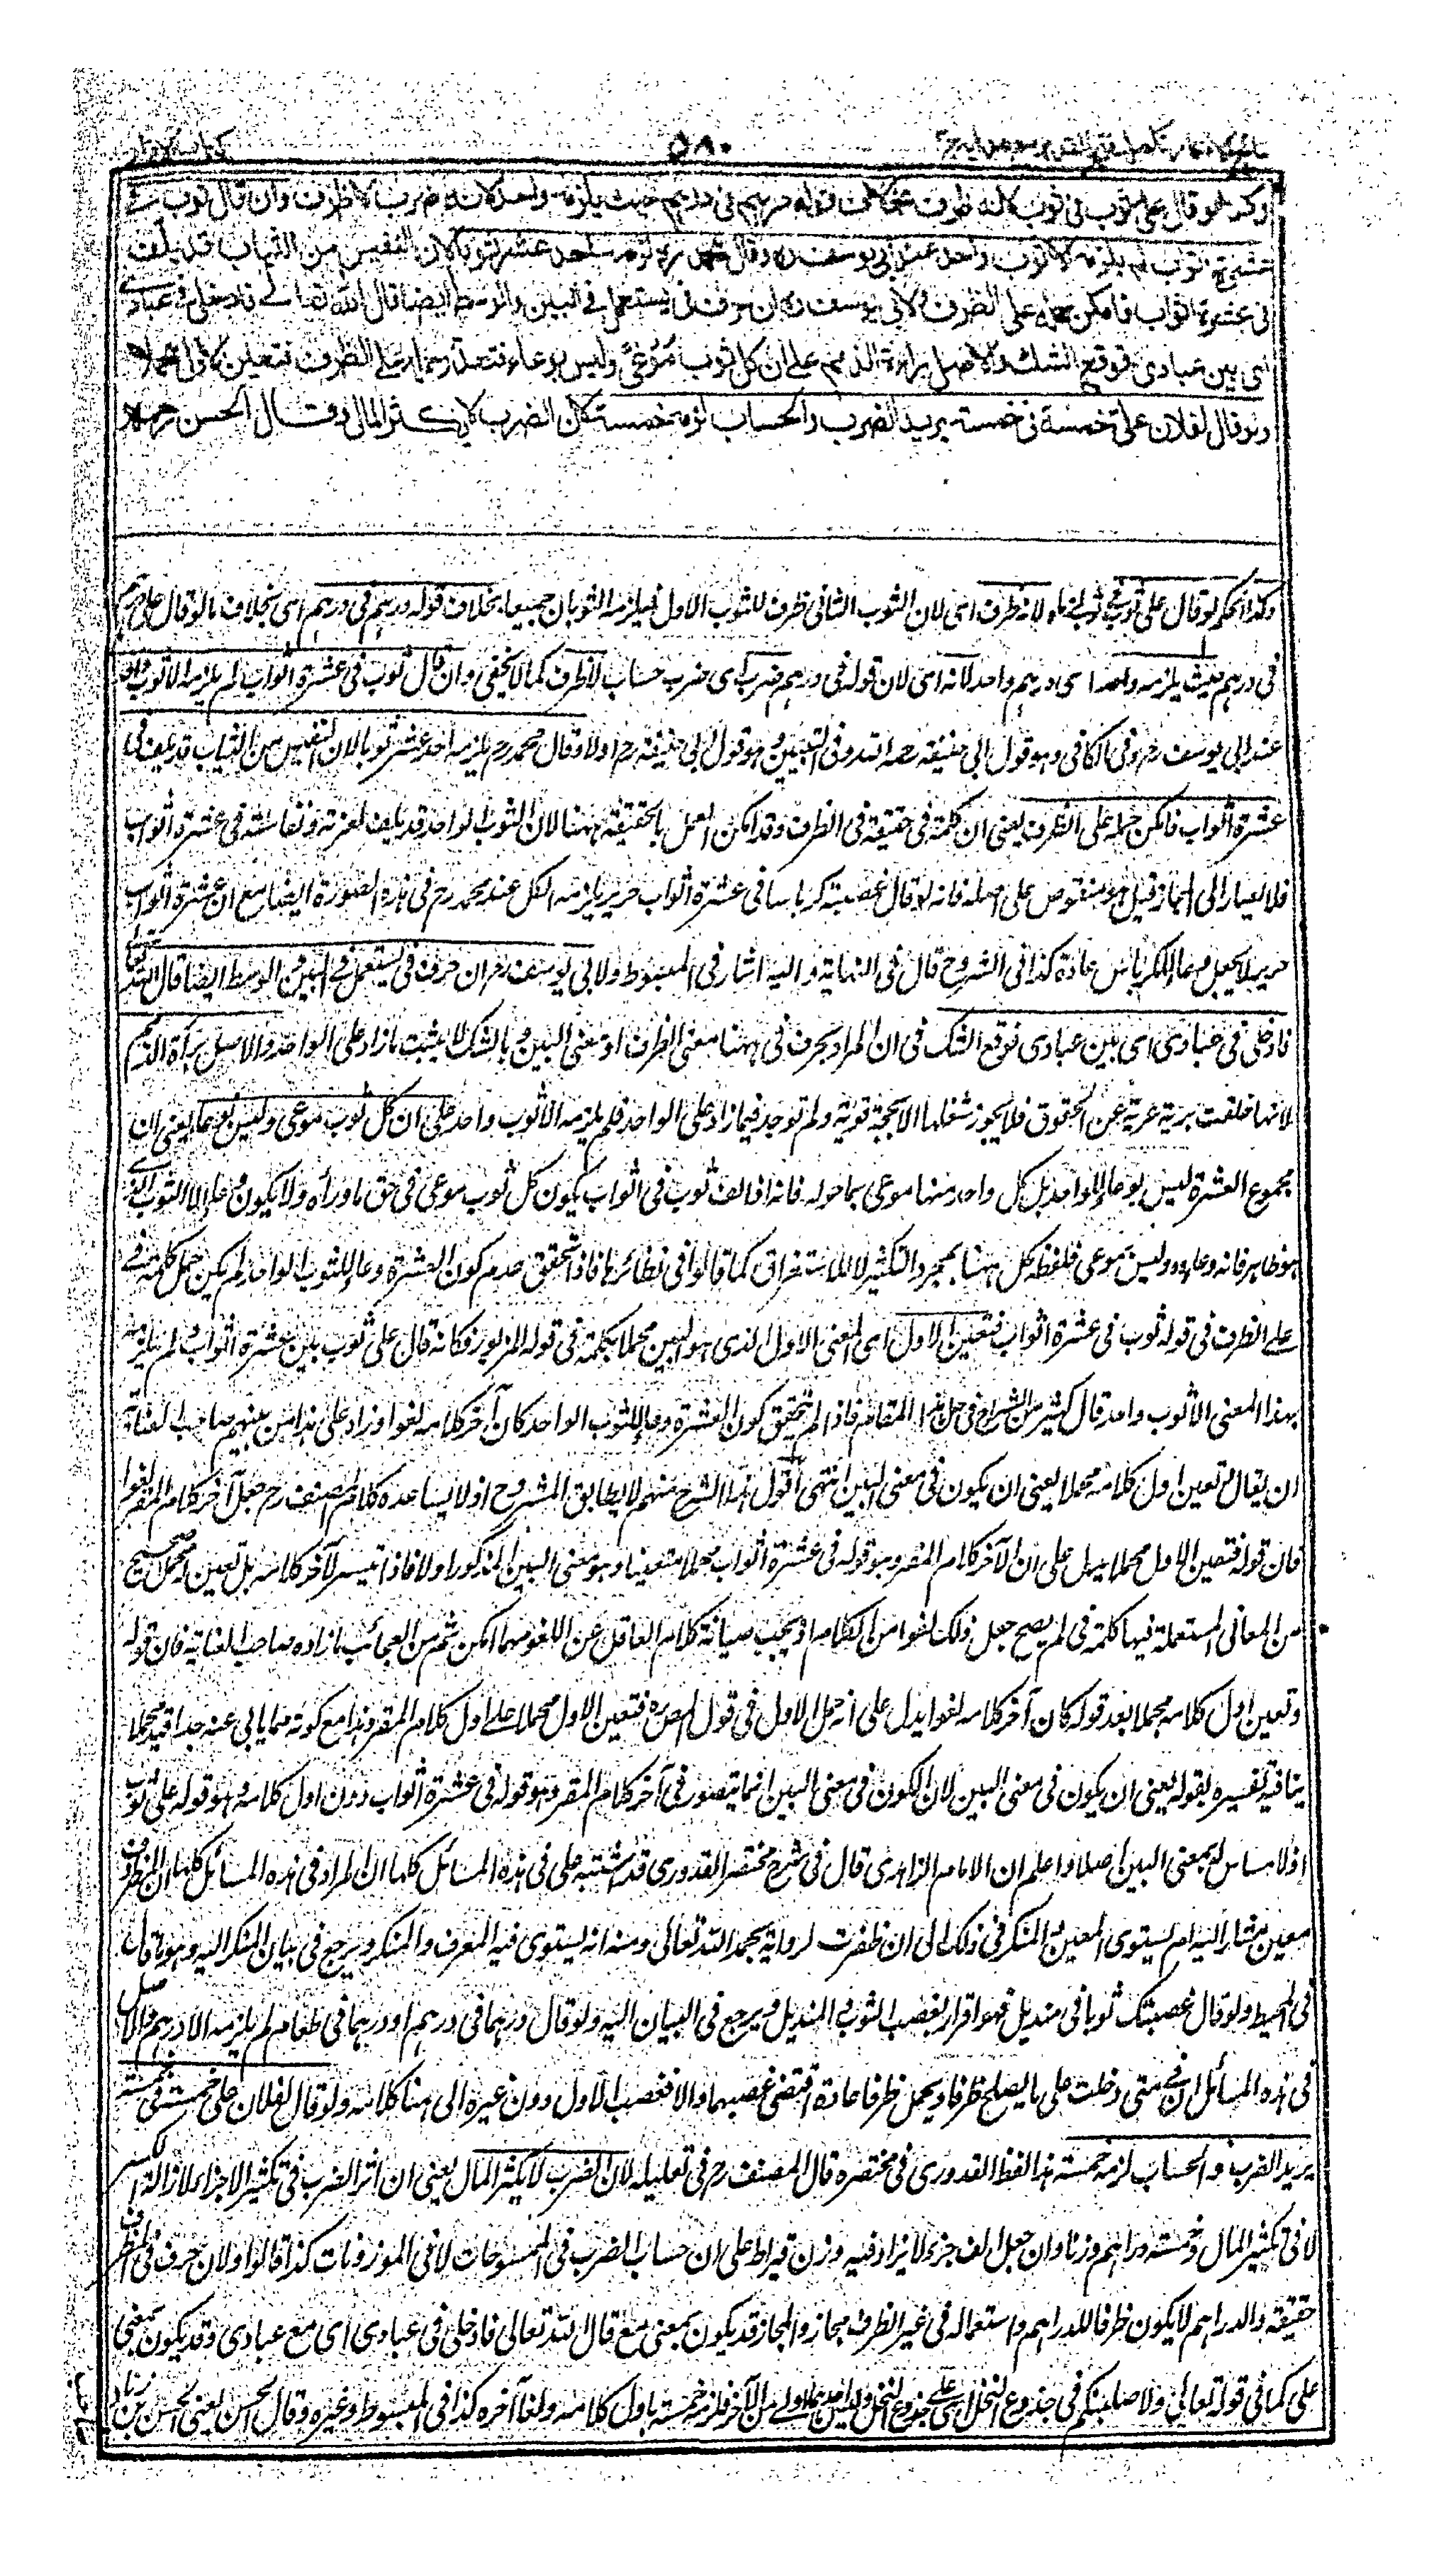 نتائج الافكار تكملة فتح القدير مع هداية ج ٣ ٥٨٠ كتاب الاقرار
وكذا لو قال علي ثوب في ثوب لانه ظرف بخلاف قوله درهم في درهم حيث يلزمه واحد لانه ضرب لا ظرف وان قال ثوب في
عشرة اثواب لم يلزمه الا ثوب واحد عند ابي يوسف ره وقال محمد ره لزمه احد عشر ثوبا لان النفيس من الثياب قد يلف
في عشرة اثواب فامكن حمله على الظرف ولابي يوسف ره ان حرف في يستعمل في البين والوسط ايضا قال الله تعالى فادخلي في عبادي
اي بين عبادي فوقع الشك والاصل براءة الذمم على ان كل ثوب موعى وليس بوعاء فتعذر حمله على الظرف فتعين الاول محملا
ولو قال لفلان علي خمسة في خمسة يريد الضرب والحساب لزمه خمسة لان الضرب لا يكثر المال وقال الحسن رحمه الله
وكذا الحكم لو قال علي ثوب في ثوب لزماه لانه ظرف اى لان الثوب الثانى ظرف للثوب الاول فيلزمه الثوبان جميعا بخلاف قوله درهم فى درهم اى بخلاف ما لو قال على درهم
فى درهم حيث يلزمه واحد اى درهم واحد لانه اى لان قوله فى درهم ضرب اى ضرب حساب لا ظرف كما لا يخفى وان قال ثوب فى عشرة اثواب لم يلزمه الا ثوب واحد
عند ابى يوسف رح وفى الكافى وهو قول ابى حنيفة رحمه الله وفى التبيين وهو قول ابى حنيفة رح اولا وقال محمد رح يلزمه احد عشر ثوبا لان النفيس من الثياب قد يلف فى
عشرة اثواب فامكن حمله على الظرف يعنى ان كلمة فى حقيقة فى الظرف وقد امكن العمل بالحقيقة ههنا لان الثوب الواحد قد يلف لعزته ونفاسته فى عشرة اثواب
فلا يصار الى المجاز قيل هو منقوض على اصله فانه لو قال غصبته كرباسا فى عشرة اثواب حرير يلزمه الكل عند محمد رح فى هذه الصورة ايضا مع ان عشرة اثواب
حرير لا يجعل وعاء للكرباس عادة كذا فى الشروح قال فى النهاية واليه اشار فى المبسوط ولابى يوسف رح ان حرف فى يستعمل فى البين والوسط ايضا قال الله تعالى
فادخلى فى عبادى اى بين عبادى فوقع الشك فى ان المراد بحرف فى ههنا معنى الظرف او معنى البين وبالشك لا يثبت ما زاد على الواحد والاصل براءة الذمم
لانها خلقت برية عرية عن الحقوق فلا يجوز شغلها الا بحجة قوية ولم توجد فيما زاد على الواحد فلم يلزمه الا ثوب واحد على ان كل ثوب موعى وليس بوعاء يعنى ان
مجموع العشرة ليس بوعاء للواحد بل كل واحد منها موعى بما حوله فانه اذا لف ثوب فى اثواب يكون كل ثوب موعى فى حق ما وراءه ولا يكون وعاء الا الثوب الذى
هو ظاهر فانه وعاء وليس بموعى فلفظة كل ههنا بمجرد التكثير لا للاستغراق كما قالوا فى نظائرها فاذا تحقق عدم كون العشرة وعاء للثوب الواحد لم يكن حمل كلمة فى
على الظرف فى قوله ثوب فى عشرة اثواب فتعين الاول اى المعنى الاول الذى هو البين محملا بكلمة فى قوله المزبور فكانه قال على ثوب بين عشرة اثواب ولم يلزمه
بهذا المعنى الا ثوب واحد قال كثير من الشراح فى حل هذا المقام فاذا لم يتحقق كون العشرة وعاء للثوب الواحد كان آخر كلامه لغوا وزاد على هذا من بينهم صاحب العناية
ان يقال وتعين اول كلامه محملا يعنى ان يكون فى معنى البين انتهى اقول هذا الشرح منهم لا يطابق المشروح اذ لا يساعده كلام المصنف رح جعل آخر كلام المقر لغوا
فان قوله فتعين الاول محملا يدل على ان لآخر كلام المقر وهو قوله فى عشرة اثواب محملا متعينا وهو معنى البين المذكور اولا فاذا تيسر لآخر كلامه بل تعين له محمل صحيح
من المعانى المستعملة فيها كلمة فى لم يصح جعل ذلك لغوا من الكلام اذ يجب صيانة كلام العاقل عن اللغو مهما امكن ثم من العجائب ما زاده صاحب العناية فان قوله
وتعين اول كلامه محملا بعد قوله كان آخر كلامه لغوا يدل على انه حمل الاول فى قول المص ره فتعين الاول محملا على اول كلام المقر وهذا مع كونه مما يابى عنه جدا قيد محملا
ينافيه تفسيره بقوله يعنى ان يكون فى معنى البين لان الكون فى معنى البين انما يتصور فى آخر كلام المقر وهو قوله فى عشرة اثواب دون اول كلامه وهو قوله على ثوب
اذ لا مساس له بمعنى البين اصلا واعلم ان الامام الزاهدى قال فى شرح مختصر القدورى قد اشتبه على فى هذه المسائل كلها ان المراد فى هذه المسائل كلها ان المظروف
معين مشار اليه ام يستوى المعين والمنكر فى ذلك الى ان ظفرت لرواية بحمد الله تعالى ومنه انه يستوى فيه المعرف والمنكر ويرجع فى بيان المنكر اليه وهو ما قال
فى المحيط ولو قال غصبتك ثوبا فى منديل فهو اقرار بغصب الثوب والمنديل ويرجع فى البيان اليه ولو قال درهما فى درهم او درهما فى طعام لم يلزمه الا درهم والاصل
فى هذه المسائل ان فى متى دخلت على ما يصلح ظرفا ويجعل ظرفا عادة اقتضى غصبهما والا فغصب الاول دون غيره الى هنا كلامه ولو قال لفلان على خمسة فى خمسة
يريد الضرب والحساب لزمه خمسة هذا لفظ القدورى فى مختصره قال المصنف رح فى تعليله لان الضرب لا يكثر المال يعنى ان اثر الضرب فى تكثير الاجزاء لازالة الكسر
لا فى تكثير المال وخمسة دراهم وزنا وان جعل الف جزء لا يزاد فيه وزن قيراط على ان حساب الضرب فى الممسوحات لا فى الموزونات كذا قالوا ولان حرف فى للظرف
حقيقة والدراهم لا يكون ظرفا للدراهم واستعماله فى غير الظرف مجاز والمجاز قد يكون بمعنى مع قال الله تعالى فادخلى فى عبادى اى مع عبادى وقد يكون بمعنى
على كما فى قوله تعالى ولاصلبنكم فى جذوع النخل اى على جذوع النخل وليس احدهما باولى من الآخر فلزمه خمسة باول كلامه ولغا آخره كذا فى المبسوط وغيره وقال الحسن يعنى الحسن بن زياد